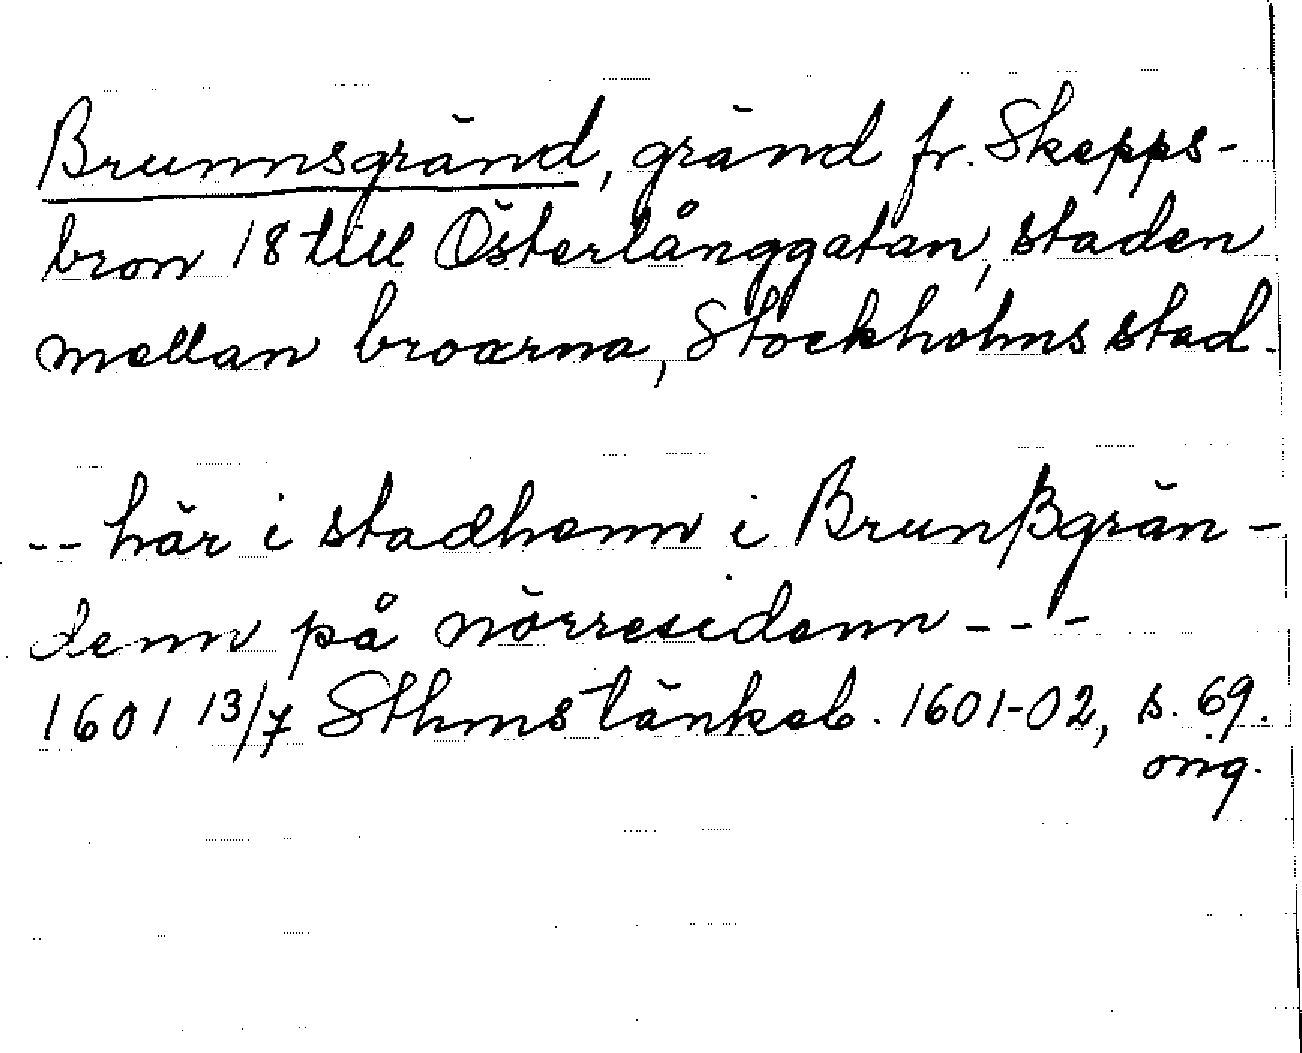 Brunnsgränd, gränd fr. Skepps-
bron 18 till Österlånggatan, staden
mellan broarna, Stockholms stad.
-- här i stadhenn i Brunßgrän-
denn på nörresidenn ---
1601 13/7 Sthms tänkeb. 1601-02, s. 69.
orig.